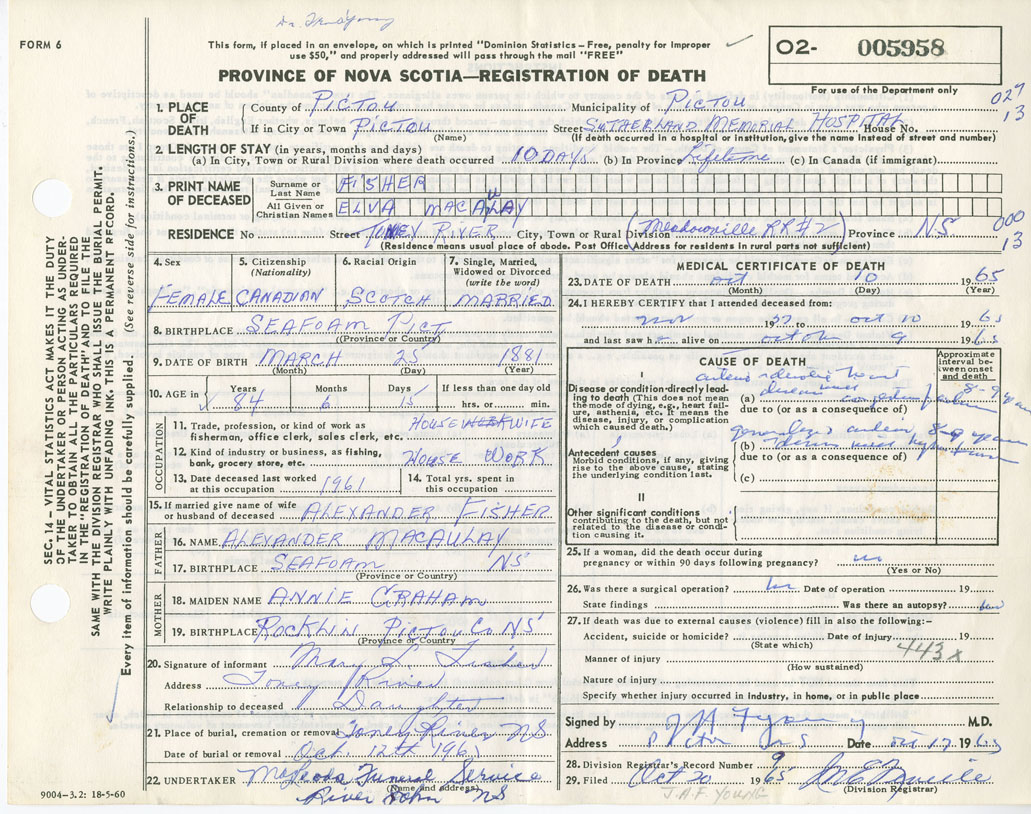 FORM 6
This form, if placed in an envelope, on which is printed "Dominion Statistics – Free, penalty for improper
use $50," and properly addressed will pass through the mail "FREE"
PROVINCE OF NOVA SCOTIA—REGISTRATION OF DEATH
O2- 005958
For use of the Department only
027
13
1. PLACE OF DEATH
County of PICTOU Municipality of PICTOU
If in City or Town PICTOU Street SUTHERLAND MEMORIAL HOSPITAL House No.
(Name) (If death occurred in a hospital or institution, give the name instead of street and number)
2. LENGTH OF STAY (in years, months and days)
(a) In City, Town or Rural Division where death occurred 10 DAYS (b) In Province Lifetime (c) In Canada (if immigrant)
3. PRINT NAME OF DECEASED
Surname or Last Name FISHER
All Given or Christian Names ELVA MACAULAY
RESIDENCE No. Street TONEY RIVER City, Town or Rural Division (Meadowville RR#2) Province NS
000
13
(Residence means usual place of abode. Post Office Address for residents in rural parts not sufficient)
4. Sex FEMALE
5. Citizenship (Nationality) CANADIAN
6. Racial Origin SCOTCH
7. Single, Married, Widowed or Divorced (write the word) MARRIED
8. BIRTHPLACE SEAFOAM PICT
(Province or Country)
9. DATE OF BIRTH MARCH 25 1881
(Month) (Day) (Year)
10. AGE in Years 84 Months 6 Days 15 If less than one day old
hrs. or min.
OCCUPATION
11. Trade, profession, or kind of work as fisherman, office clerk, sales clerk, etc. HOUSEWIFE
12. Kind of industry or business, as fishing, bank, grocery store, etc. HOUSE WORK
13. Date deceased last worked at this occupation 1961
14. Total yrs. spent in this occupation
15. If married give name of wife or husband of deceased ALEXANDER FISHER
FATHER
16. NAME ALEXANDER MACAULAY
17. BIRTHPLACE SEAFOAM NS
(Province or Country)
MOTHER
18. MAIDEN NAME ANNIE GRAHAM
19. BIRTHPLACE ROCKLIN PICTOU CO NS
(Province or Country)
20. Signature of informant Mary L. Fisher
Address Toney River
Relationship to deceased Daughter
21. Place of burial, cremation or removal Toney River NS
Date of burial or removal Oct. 12th 1965
22. UNDERTAKER McLeods Funeral Service
(Name and address)
River John NS
9004–3.2: 18-5-60
MEDICAL CERTIFICATE OF DEATH
23. DATE OF DEATH Oct 10 1965
(Month) (Day) (Year)
24. I HEREBY CERTIFY that I attended deceased from:
Nov 1957 to Oct 10 1965
and last saw h alive on October 9 1965
CAUSE OF DEATH
Approximate interval between onset and death
I
Disease or condition directly leading to death (This does not mean the mode of dying, e.g., heart failure, asthenia, etc. It means the disease, injury, or complication which caused death)
(a) heart disease 8-9 years
due to (or as a consequence of)
Antecedent causes
Morbid conditions, if any, giving rise to the above cause, stating the underlying condition last.
(b) 8-9 years
due to (or as a consequence of)
(c)
II
Other significant conditions
contributing to the death, but not related to the disease or condition causing it.
25. If a woman, did the death occur during pregnancy or within 90 days following pregnancy? no
(Yes or No)
26. Was there a surgical operation? no Date of operation 19
State findings Was there an autopsy? no
27. If death was due to external causes (violence) fill in also the following:-
Accident, suicide or homicide? Date of injury 19
(State which)
443x
Manner of injury
(How sustained)
Nature of injury
Specify whether injury occurred in industry, in home, or in public place
Signed by M.D.
Address Pictou NS Date Oct 17 1965
28. Division Registrar's Record Number 9
29. Filed Oct 20 1965
(Division Registrar)
J.A.F. YOUNG
SEC. 14 – VITAL STATISTICS ACT MAKES IT THE DUTY
OF THE UNDERTAKER OR PERSON ACTING AS UNDER-
TAKER TO OBTAIN ALL THE PARTICULARS REQUIRED
IN THE "REGISTRATION OF DEATH" AND TO FILE THE
SAME WITH THE DIVISION REGISTRAR WHO SHALL ISSUE THE BURIAL PERMIT.
WRITE PLAINLY WITH UNFADING INK. THIS IS A PERMANENT RECORD.
Every item of information should be carefully supplied. (See reverse side for instructions.)